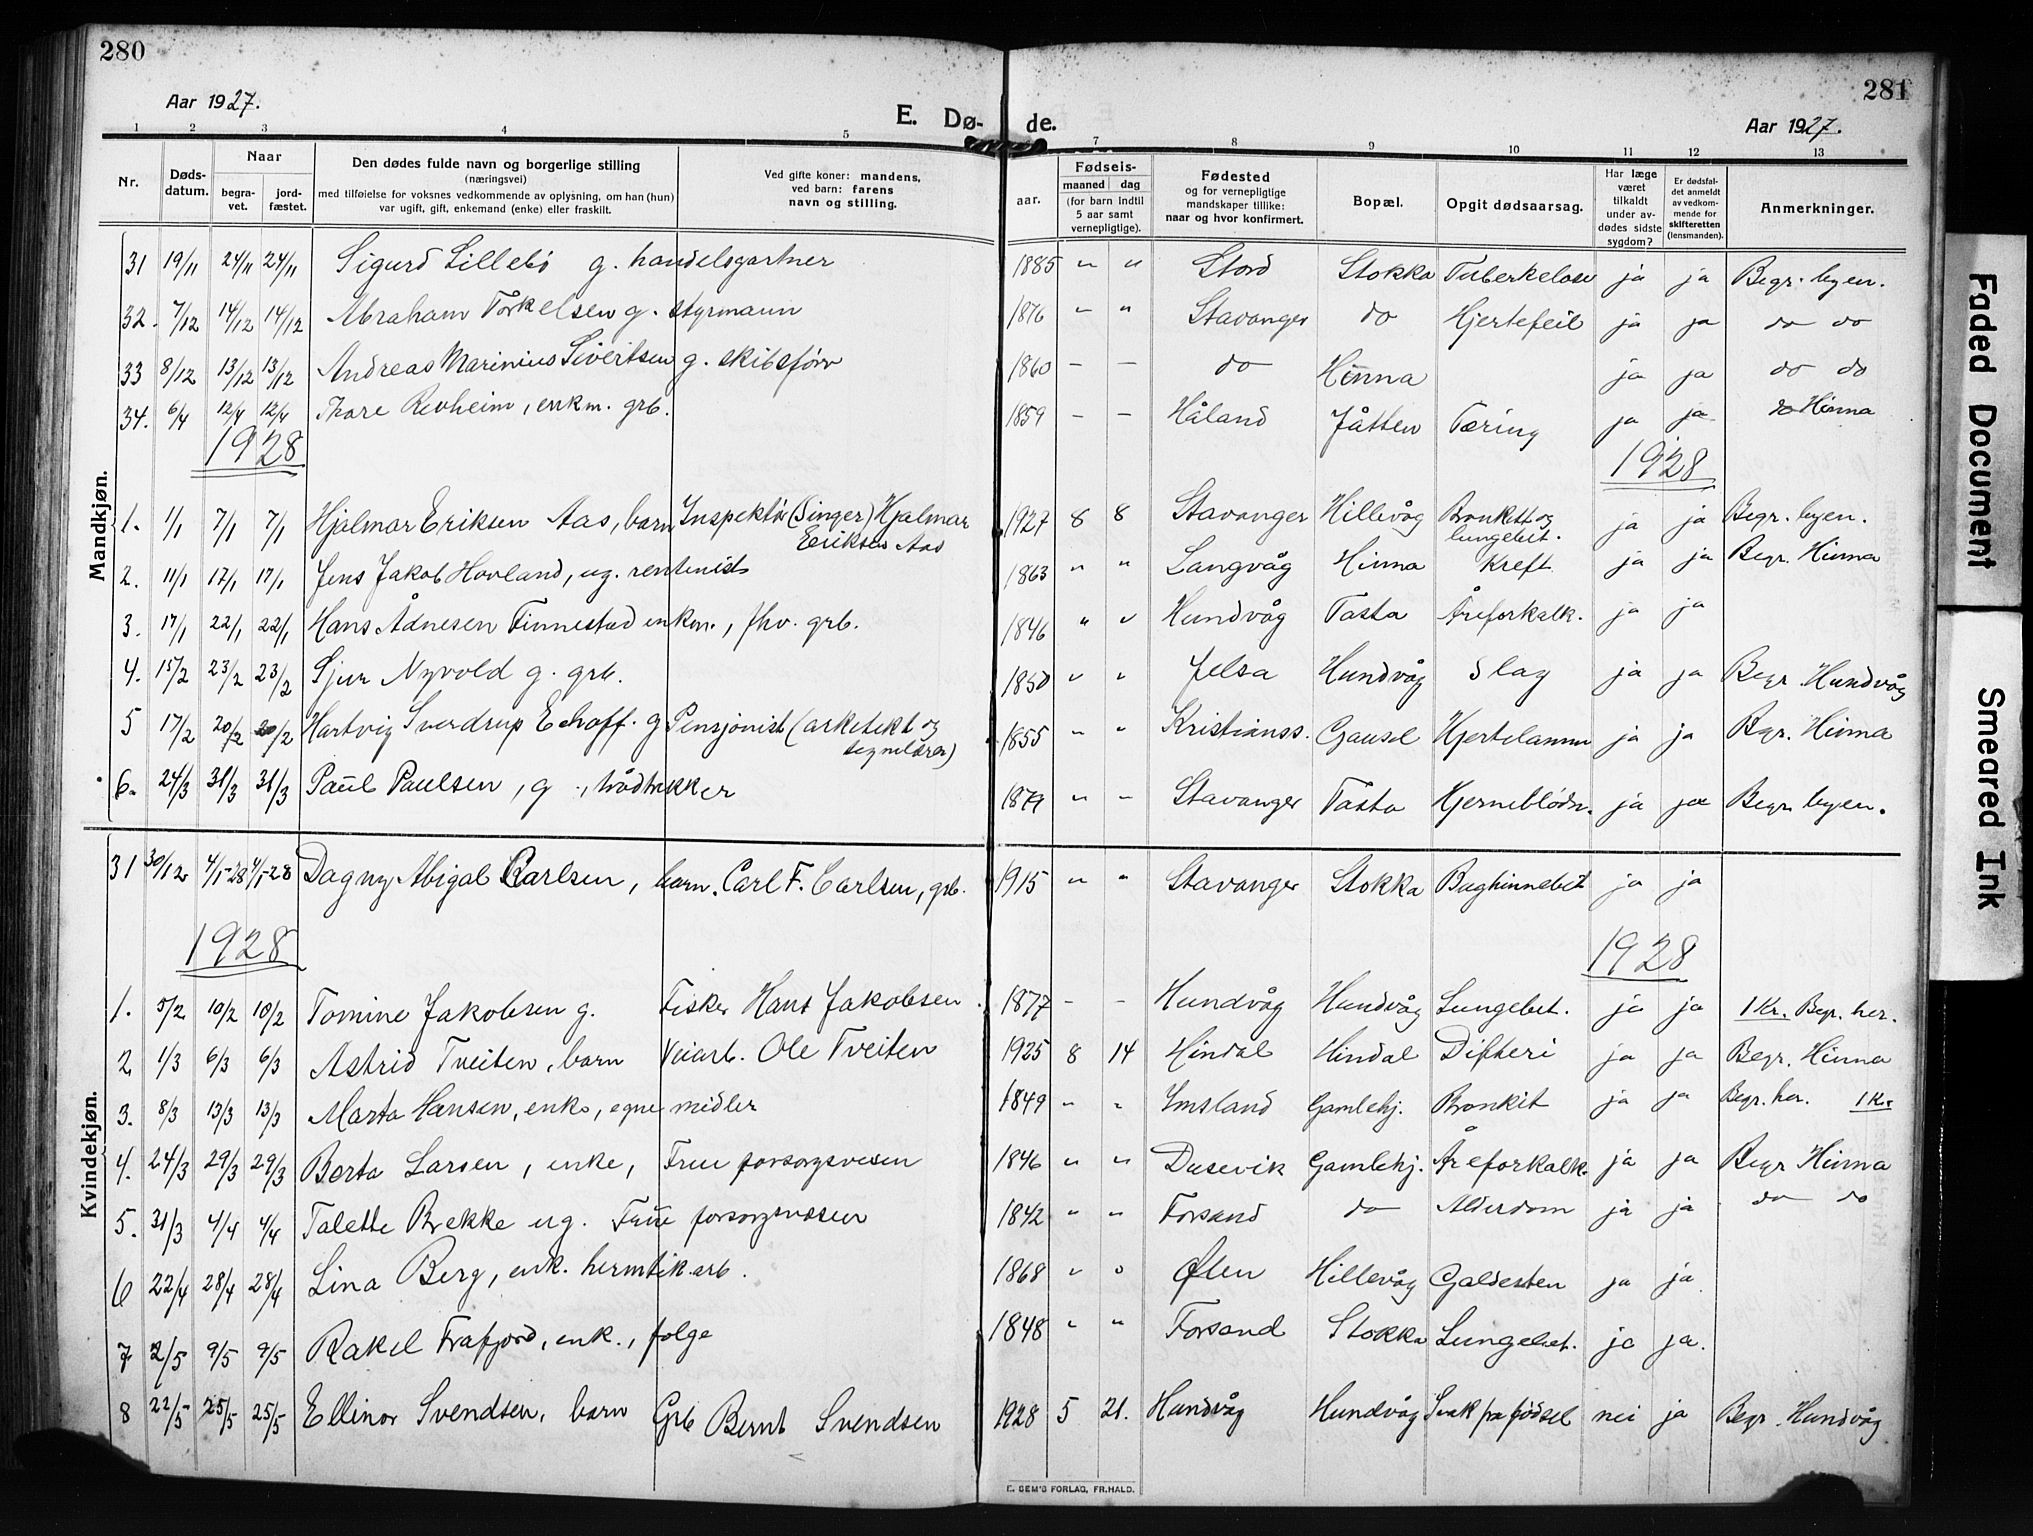 280
281
Aar 1927.
E. Dø- de.
Aar 1927.
1 2 3 4 5 7 8 9 10 11 12 13
Nr.
Døds-datum.
Naar
begra-vet.
jord-fæstet.
Den dødes fulde navn og borgerlige stilling
(næringsvei)
med tilføielse for voksnes vedkommende av oplysning, om han (hun)
var ugift, gift, enkemand (enke) eller fraskilt.
Ved gifte koner: mandens,
ved barn: farens
navn og stilling.
Fødsels-
aar. maaned dag
(for barn indtil
5 aar samt
vernepligtige).
Fødested
og for vernepligtige
mandskaper tillike:
naar og hvor konfirmert.
Bopæl.
Opgit dødsaarsag.
Har læge
været
tilkaldt
under av-
dødes sidste
sygdom?
Er dødsfal-
det anmeldt
av vedkom-
mende for
skifteretten
(lensmanden).
Anmerkninger.
Mandkjøn.
31 19/11 24/11 24/11 Sigurd Lillebø g. handelsgartner 1885 " " Stord Stokka Tuberkelose ja ja Begr. byen.
32. 7/12 14/12 14/12 Abraham Torkelsen g. styrmann 1876 " " Stavanger do Hjertefeil ja ja do do
33 8/12 13/12 13/12 Andreas Marinius Sivertsen g. skibsfører 1860 — — do Hinna ja ja do do
34. 6/4 12/4 12/4 Thore Revheim, enkm. grb. 1859 — — Håland Jåtten Tæring ja ja do Hinna
1928 1928
1. 1/1 7/1 7/1 Hjalmar Eriksen Aas, barn Inspektør (Singer) Hjalmar 1927 8 8 Stavanger Hillevåg Bronkitt og ja ja Begr. byen.
Eriksen Aas lungebet.
2. 11/1 17/1 17/1 Jens Jakob Hovland, ug. rentenist 1863 " " Langvåg Hinna Kreft ja ja Begr. Hinna
3. 17/1 22/1 22/1 Hans Ådnesen Finnestad enkm., fhv. grb. 1846 " " Hundvåg Tasta Åreforkalk. ja ja
4. 15/2 23/2 23/2 Sjur Nyvold g. grb. 1850 " " Jelsa Hundvåg Slag ja ja Begr. Hundvåg
5 17/2 20/2 20/2 Hartvig Sverdrup Echoff. g Pensjonist (arkitekt og 1855 " " Kristianss. Gausel Hjertelamm ja ja Begr. Hinna
tegnelærer)
6. 24/3 31/3 31/3 Paul Paulsen, g., trådtrekker 1879 " — Stavanger Tasta Hjerneblødn. ja ja Begr byen.
Kvindekjøn.
31 30/12 4/1-28 4/1-28 Dagny Abigal Carlsen, barn. Carl F. Carlsen, grb. 1915 " " Stavanger Stokka Bughinnebet ja ja
1928 1928
1. 5/2 10/2 10/2 Tomine Jakobsen g. Fisker Hans Jakobsen. 1877 — — Hundvåg Hundvåg Lungebet. ja ja 1 Kr. Begr. her.
2 1/3 6/3 6/3 Astrid Tveiten, barn Veiarb. Ole Tveiten 1925 8 14 Hindal Hindal Difteri ja ja Begr. Hinna
3. 8/3 13/3 13/3 Marta Hansen, enke, egne midler 1849 " " Imsland Gamlehj. Bronkit ja ja Begr. her. 1 Kr
4. 24/3 29/3 29/3 Berta Larsen, enke, Frue forsorgsvesen 1846 " " Dusevik Gamlehj. Åreforkalk. ja ja Begr Hinna
5. 31/3 4/4 4/4 Talette Brekke ug. Frue forsorgsvæsen 1842 " " Forsand do Alderdom ja ja do do
6 22/4 28/4 28/4 Lina Berg, enk. hermtik.arb. 1868 " " Ølen Hillevåg Galdesten ja ja
7 2/5 9/5 9/5 Rakel Frafjord, enk., følge 1848 " " Forsand Stokka Lungebet. ja ja.
8 22/5 25/5 25/5 Ellinor Svendsen, barn Grb Bernt Svendsen 1928 5 21. Hundvåg Hundvåg Svak fra fødsel nei ja Begr. Hundvåg
E. SEM'S FORLAG, FR.HALD.
Faded Document
Smeared Ink